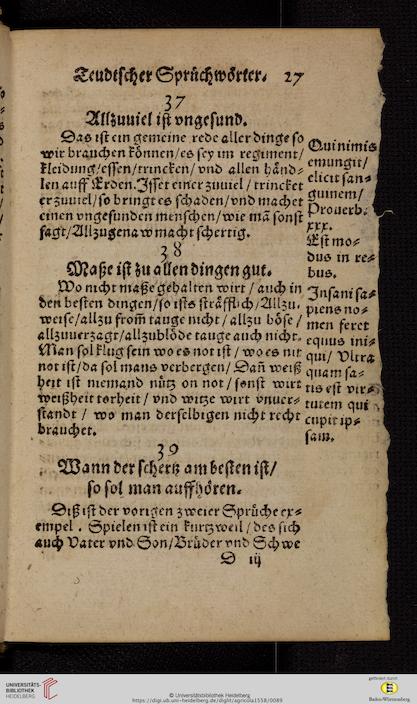 Teudtscher Sprüchwörter. 27
37
Allzuuiel ist vngesund.
Das ist ein gemeine rede aller dinge so
wir brauchen können/es sey im regiment/
kleidung/essen/trincken/ vnd allen händ-
len auff Erden. Isset einer zuuiel / trincket
er zuuiel/so bringt es schaden/vnd machet
einen vngesunden menschen/wie mã sonst
sagt/Allzugenaw macht schertig.
38
Maße ist zu allen dingen gut.
Wo nicht maße gehalten wirt / auch in
den besten dingen/so ists sträfflich/Allzu-
weise/allzu from̃ tauge nicht / allzu böse /
allzuuerzagt/allzublöde tauge auch nicht.
Man sol klug sein wo es not ist / wo es nit
not ist/da sol mans verbergen/ Dañ weiß
heit ist niemand nütz on not / sonst wirt
weißheit torheit / vnd witze wirt vnuer-
standt / wo man derselbigen nicht recht
brauchet.
39
Wann der schertz am besten ist/
so sol man auffhören.
Diß ist der vorigen zweier Sprüche ex-
empel . Spielen ist ein kurtzweil / des sich
auch Vater vnd Son/Brüder vnd Schwe
D iij
Qui nimis
emungit/
elicit san-
guinem/
Prouerb.
xxx.
Est mo-
dus in re-
bus.
Insani sa-
piens no-
men feret
equus ini-
qui/ Vltra
quam sa-
tis est vir-
tutem qui
cupit ip-
sam.
UNIVERSITÄTS-
BIBLIOTHEK
HEIDELBERG
© Universitätsbibliothek Heidelberg
https://digi.ub.uni-heidelberg.de/diglit/agricola1558/0089
gefördert durch
Baden-Württemberg